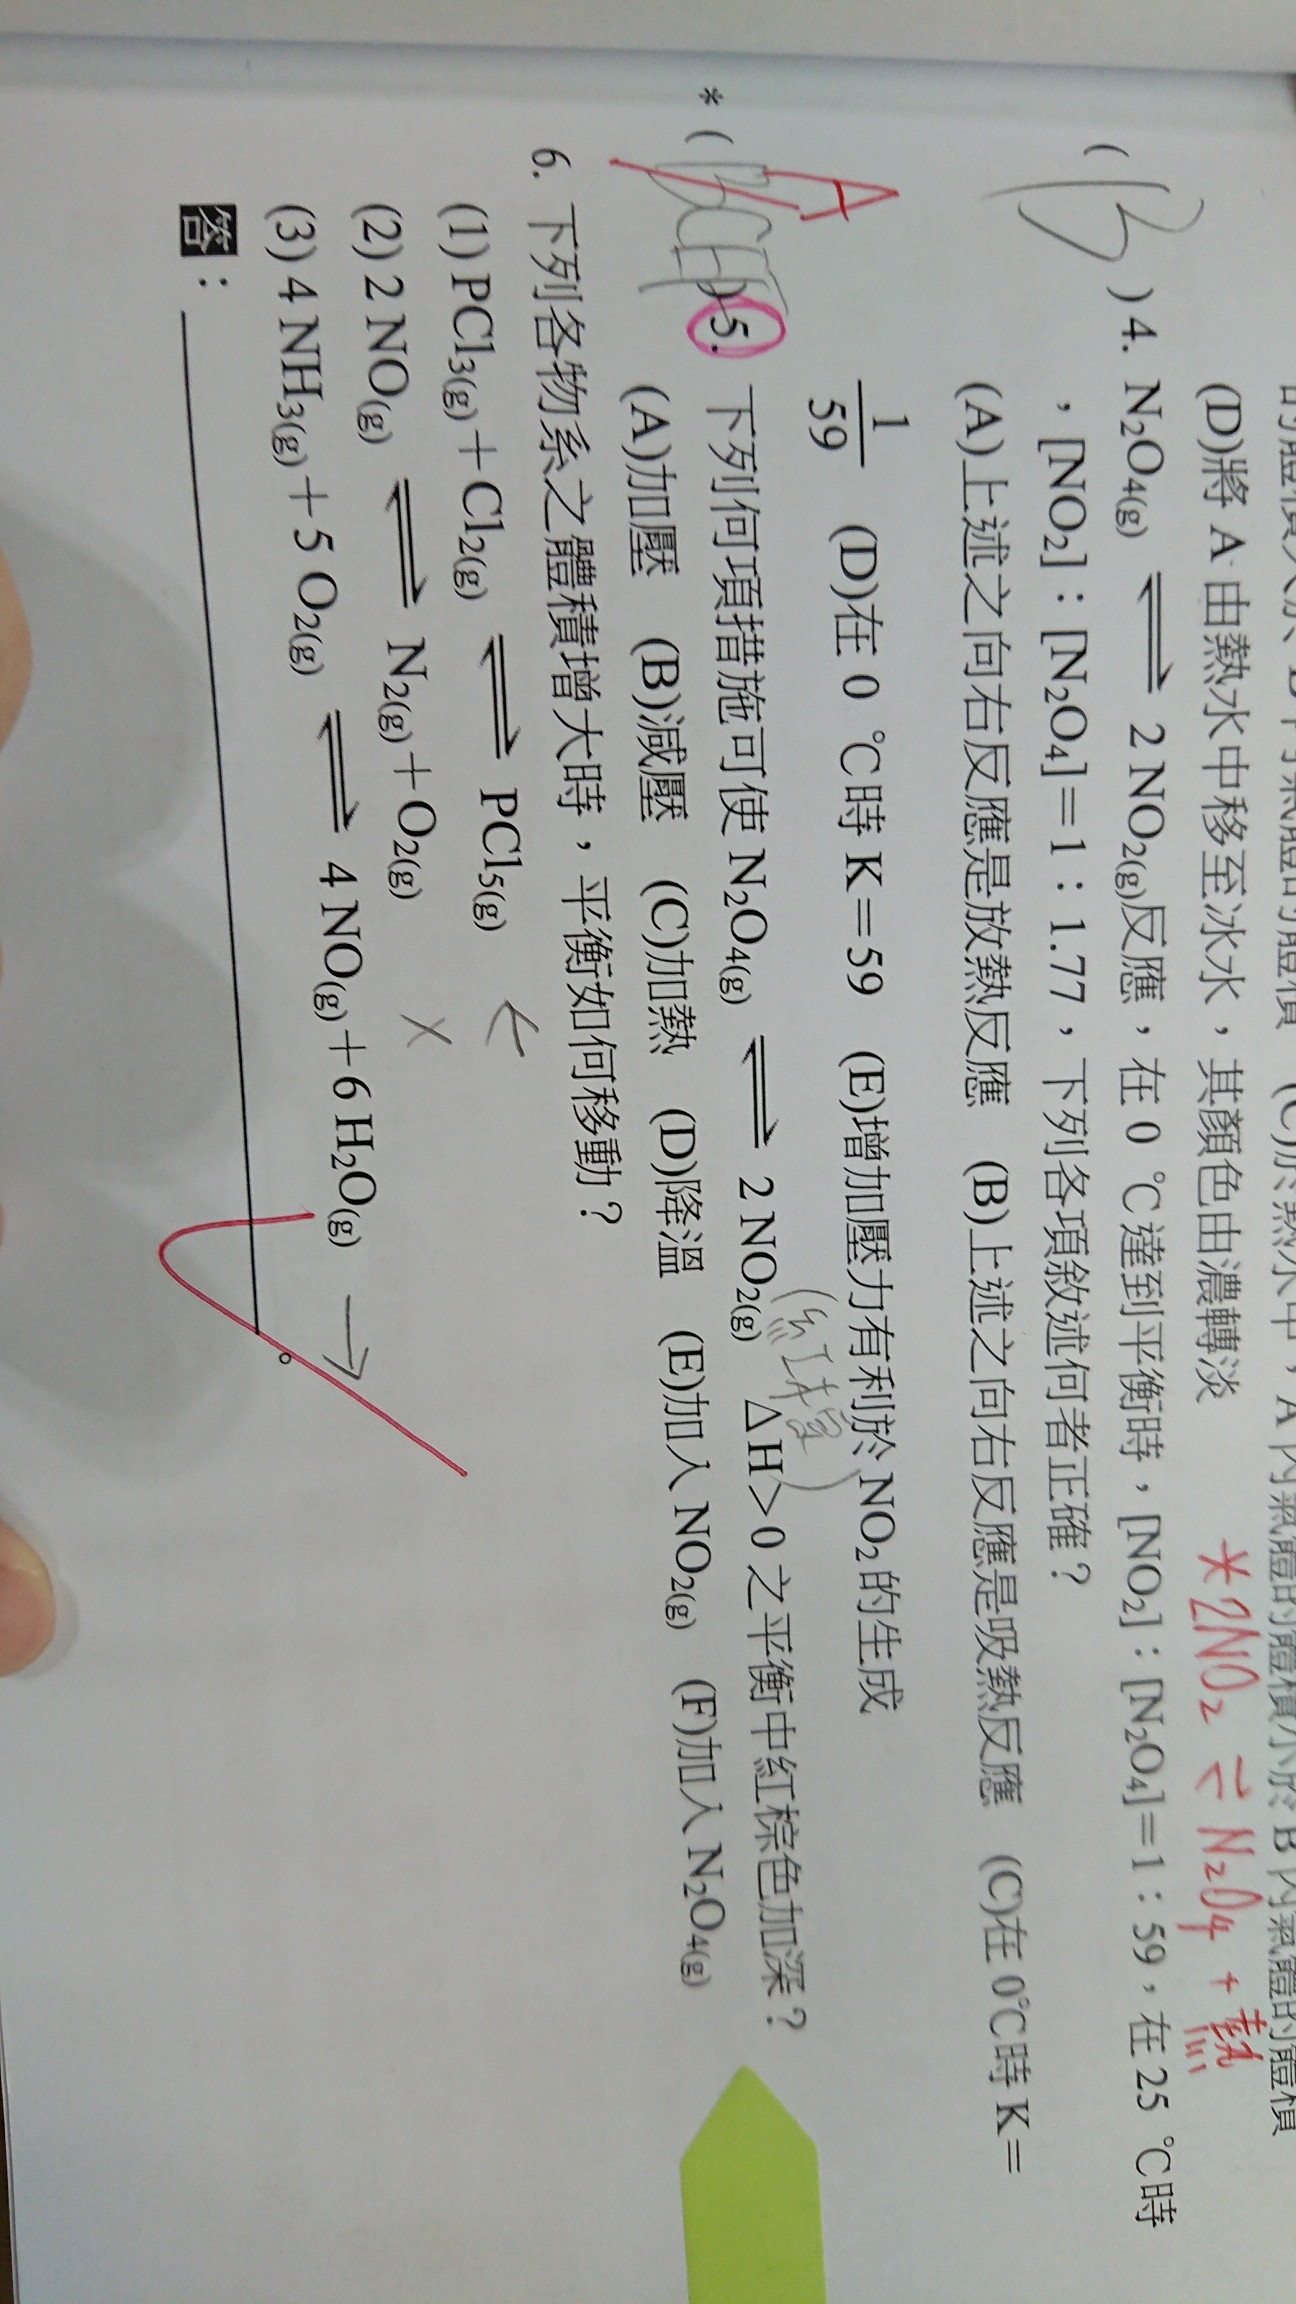 (D)將 A 由熱水中移至冰水,其顏色由濃轉淡
*2NO₂ ⇌ N₂O₄ + 熱
( B ) 4. N₂O₄(g) ⇌ 2 NO₂(g)反應,在 0 ℃達到平衡時,[NO₂]:[N₂O₄]=1:59,在 25 ℃時
,[NO₂]:[N₂O₄]=1:1.77,下列各項敘述何者正確?
(A)上述之向右反應是放熱反應 (B)上述之向右反應是吸熱反應 (C)在 0℃時 K=
1/59 (D)在 0 ℃時 K=59 (E)增加壓力有利於 NO₂的生成
(紅棕色)
A
* ( BCF ) 5. 下列何項措施可使 N₂O₄(g) ⇌ 2 NO₂(g) △H>0 之平衡中紅棕色加深?
(A)加壓 (B)減壓 (C)加熱 (D)降溫 (E)加入 NO₂(g) (F)加入 N₂O₄(g)
6. 下列各物系之體積增大時,平衡如何移動?
(1) PCl₃(g)+Cl₂(g) ⇌ PCl₅(g) ←
(2) 2 NO(g) ⇌ N₂(g)+O₂(g) ×
(3) 4 NH₃(g)+5 O₂(g) ⇌ 4 NO(g)+6 H₂O(g) →
答:。